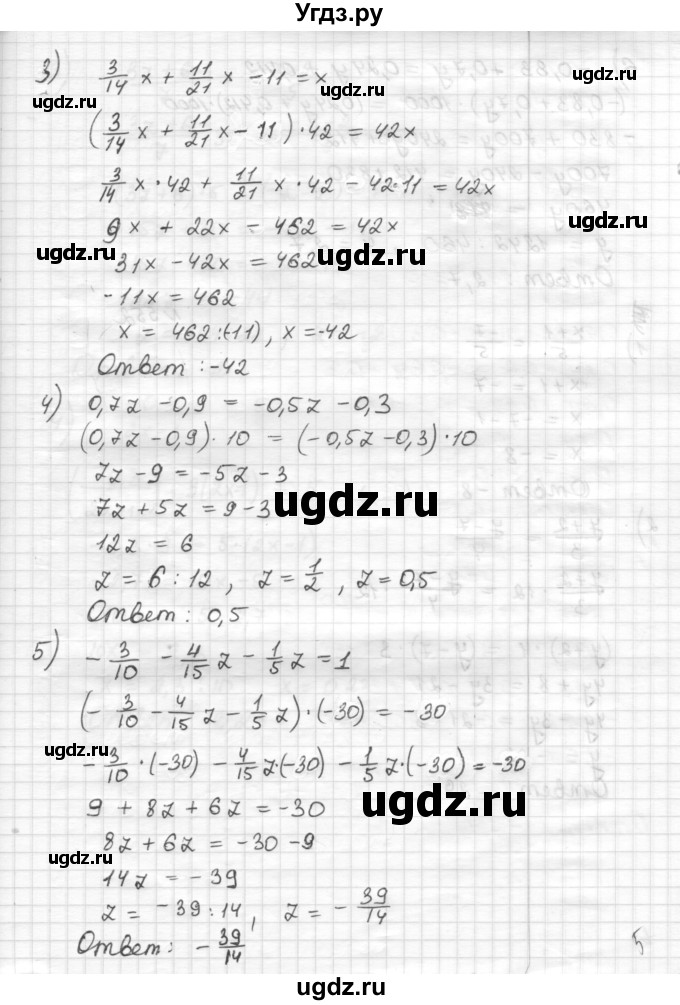 Угдз.ру
3) 3/14 x + 11/21 x - 11 = x
(3/14 x + 11/21 x - 11) · 42 = 42x
3/14 x · 42 + 11/21 x · 42 - 42·11 = 42x
ugdz.ru ugdz.ru
9x + 22x - 462 = 42x
ugdz.ru
31x - 42x = 462
ugdz.ru
-11x = 462
x = 462:(-11), x = -42
ugdz.ru
Ответ: -42
4) 0,7z - 0,9 = -0,5z - 0,3
(0,7z - 0,9) · 10 = (-0,5z - 0,3) · 10
ugdz.ru
7z - 9 = -5z - 3
7z + 5z = 9 - 3
ugdz.ru
12z = 6
z = 6 : 12, z = 1/2, z = 0,5
ugdz.ru
Ответ: 0,5
5) - 3/10 - 4/15 z - 1/5 z = 1
ugdz.ru
(- 3/10 - 4/15 z - 1/5 z) · (-30) = -30
ugdz.ru
- 3/10 · (-30) - 4/15 z·(-30) - 1/5 z·(-30) = -30
9 + 8z + 6z = -30
ugdz.ru
8z + 6z = -30 - 9
ugdz.ru
14z = -39
z = -39 : 14, z = - 39/14
ugdz.ru
Ответ: - 39/14
5
ugdz.ru